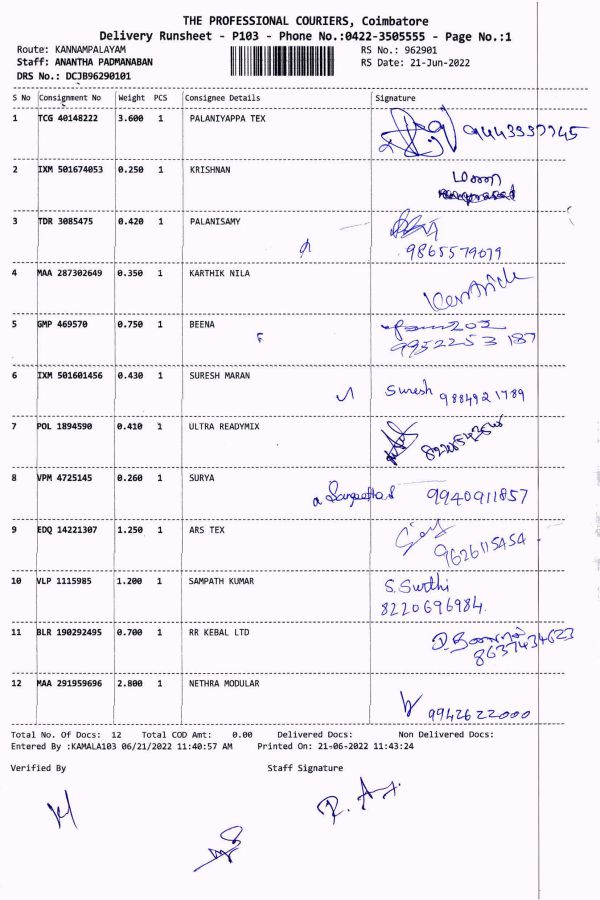 THE PROFESSIONAL COURIERS, Coimbatore
Delivery Runsheet - P103 - Phone No.:0422-3505555 - Page No.:1
Route: KANNAMPALAYAM RS No.: 962901
Staff: ANANTHA PADMANABAN RS Date: 21-Jun-2022
DRS No.: DCJB96290101
S No Consignment No Weight PCS Consignee Details Signature
1 TCG 40148222 3.600 1 PALANIYAPPA TEX
2 IXM 501674053 0.250 1 KRISHNAN
3 TDR 3085475 0.420 1 PALANISAMY
9865579079
4 MAA 287302649 0.350 1 KARTHIK NILA
5 GMP 469570 0.750 1 BEENA
9952253187
6 IXM 501601456 0.430 1 SURESH MARAN
Suresh 9884921789
7 POL 1894590 0.410 1 ULTRA READYMIX
8 VPM 4725145 0.260 1 SURYA
9940911857
9 EDQ 14221307 1.250 1 ARS TEX
9626115454
10 VLP 1115985 1.200 1 SAMPATH KUMAR
S. Surthi
8220696984.
11 BLR 190292495 0.700 1 RR KEBAL LTD
8637434623
12 MAA 291959696 2.800 1 NETHRA MODULAR
9942622000
Total No. Of Docs: 12 Total COD Amt: 0.00 Delivered Docs: Non Delivered Docs:
Entered By :KAMALA103 06/21/2022 11:40:57 AM Printed On: 21-06-2022 11:43:24
Verified By Staff Signature